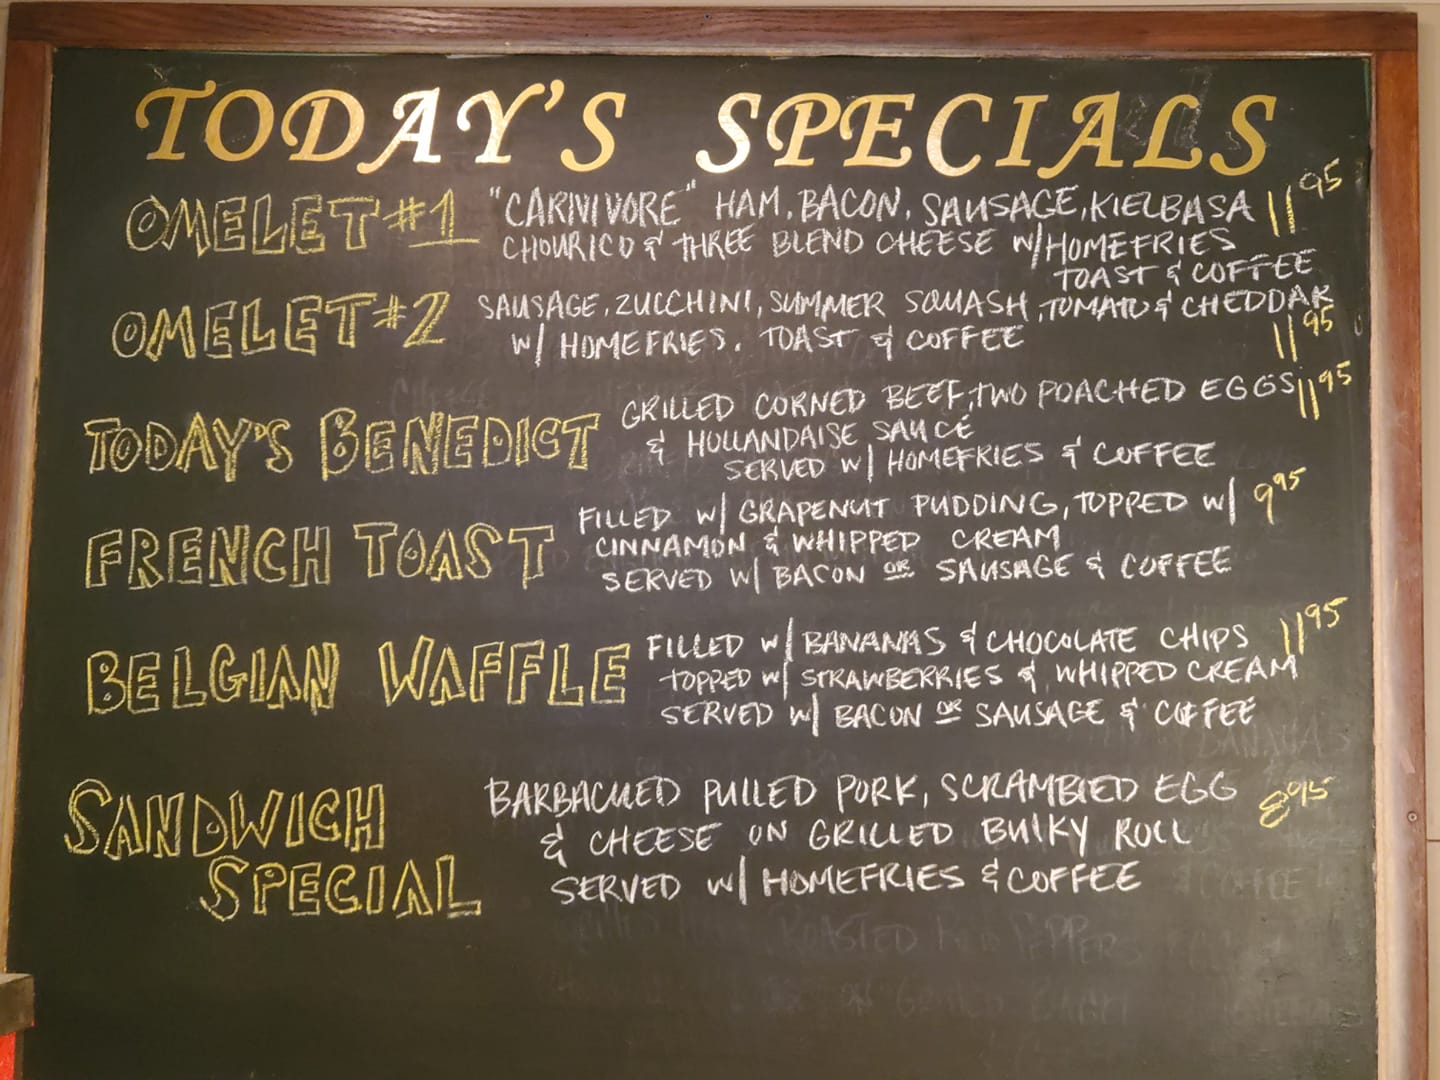 TODAY'S SPECIALS
OMELET #1 "CARNIVORE" HAM, BACON, SAUSAGE, KIELBASA 11 95
CHOURICO & THREE BLEND CHEESE W/ HOMEFRIES
TOAST & COFFEE
OMELET #2 SAUSAGE, ZUCCHINI, SUMMER SQUASH, TOMATO & CHEDDAR
W/ HOMEFRIES, TOAST & COFFEE 11 95
TODAY'S BENEDICT GRILLED CORNED BEEF, TWO POACHED EGGS 11 95
& HOLLANDAISE SAUCE
SERVED W/ HOMEFRIES & COFFEE
FRENCH TOAST FILLED W/ GRAPENUT PUDDING, TOPPED W/ 9 95
CINNAMON & WHIPPED CREAM
SERVED W/ BACON OR SAUSAGE & COFFEE
BELGIAN WAFFLE FILLED W/ BANANAS & CHOCOLATE CHIPS 11 95
TOPPED W/ STRAWBERRIES & WHIPPED CREAM
SERVED W/ BACON OR SAUSAGE & COFFEE
SANDWICH SPECIAL BARBACUED PULLED PORK, SCRAMBLED EGG 8 95
& CHEESE ON GRILLED BULKY ROLL
SERVED W/ HOMEFRIES & COFFEE